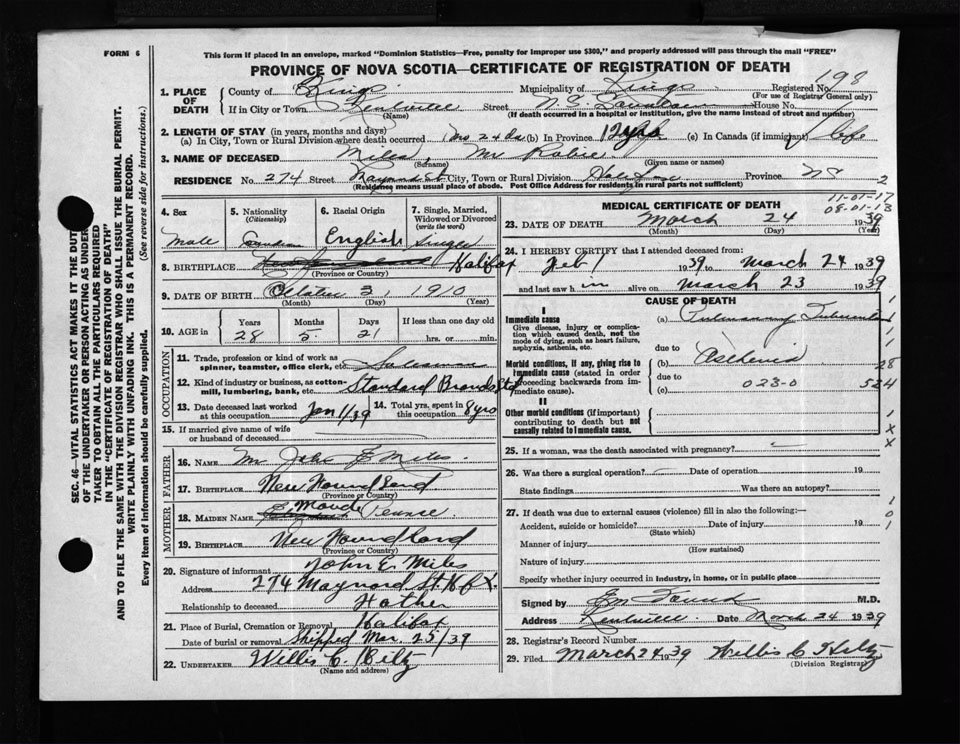 FORM 6
This form if placed in an envelope, marked "Dominion Statistics—Free, penalty for improper use $300," and properly addressed will pass through the mail "FREE"
PROVINCE OF NOVA SCOTIA—CERTIFICATE OF REGISTRATION OF DEATH
198
1. PLACE OF DEATH
County of Kings Municipality of Kings Registered No.
(For use of Registrar General only)
If in City or Town Kentville Street N.S. House No.
(Name) (If death occurred in a hospital or institution, give the name instead of street and number)
2. LENGTH OF STAY (in years, months and days)
(a) In City, Town or Rural Division where death occurred 1 mo 24 ds (b) In Province (c) In Canada (if immigrant) Life
3. NAME OF DECEASED Miles, Mr
(Surname) (Given name or names)
RESIDENCE No. 274 Street Maynard St City, Town or Rural Division Halifax Province NS 2
(Residence means usual place of abode. Post Office Address for residents in rural parts not sufficient)
4. Sex
Male
5. Nationality (Citizenship)
Canadian
6. Racial Origin
English
7. Single, Married, Widowed or Divorced (write the word)
Single
8. BIRTHPLACE Halifax
(Province or Country)
9. DATE OF BIRTH October 3, 1910
(Month) (Day) (Year)
10. AGE in
Years Months Days If less than one day old
28 5 21 hrs. or min.
OCCUPATION
11. Trade, profession or kind of work as spinner, teamster, office clerk, etc. Salesman
12. Kind of industry or business, as cotton-mill, lumbering, bank, etc. Standard Brands Ltd
13. Date deceased last worked at this occupation Jan 1/39 14. Total yrs. spent in this occupation 8 yrs
15. If married give name of wife or husband of deceased
FATHER
16. NAME Mr John E Miles.
17. BIRTHPLACE New Foundland
(Province or Country)
MOTHER
18. MAIDEN NAME Maude Pearce
19. BIRTHPLACE New Foundland
(Province or Country)
20. Signature of informant John E. Miles
Address 274 Maynard St. Hfx.
Relationship to deceased Father
21. Place of Burial, Cremation or Removal Halifax
Date of burial or removal Shipped Mar. 25/39
22. UNDERTAKER Willis C. Hiltz
(Name and address)
MEDICAL CERTIFICATE OF DEATH
11-01-17
08-01-13
23. DATE OF DEATH March 24 1939
(Month) (Day) (Year)
24. I HEREBY CERTIFY that I attended deceased from:
Feb 1 1939 to March 24 1939
and last saw him alive on March 23 1939
CAUSE OF DEATH
I
Immediate cause
Give disease, injury or complication which caused death, not the mode of dying, such as heart failure, asphyxia, asthenia, etc.
(a) Pulmonary
due to
Morbid conditions, if any, giving rise to immediate cause (stated in order proceeding backwards from immediate cause).
(b) Asthenia
28
due to
(c) 023-0 524
II
Other morbid conditions (if important) contributing to death but not causally related to immediate cause.
25. If a woman, was the death associated with pregnancy?
26. Was there a surgical operation? Date of operation 19
State findings Was there an autopsy?
27. If death was due to external causes (violence) fill in also the following:
Accident, suicide or homicide? Date of injury 19
(State which)
Manner of injury
(How sustained)
Nature of injury
Specify whether injury occurred in industry, in home, or in public place
Signed by M.D.
Address Kentville Date March 24 1939
28. Registrar's Record Number
29. Filed March 24 1939 Willis C Hiltz
(Division Registrar)
SEC. 46—VITAL STATISTICS ACT MAKES IT THE DUTY
OF THE UNDERTAKER OR PERSON ACTING AS UNDER-
TAKER TO OBTAIN ALL THE PARTICULARS REQUIRED
IN THE "CERTIFICATE OF REGISTRATION OF DEATH"
AND TO FILE THE SAME WITH THE DIVISION REGISTRAR WHO SHALL ISSUE THE BURIAL PERMIT.
WRITE PLAINLY WITH UNFADING INK. THIS IS A PERMANENT RECORD.
Every item of information should be carefully supplied. (See reverse side for instructions.)